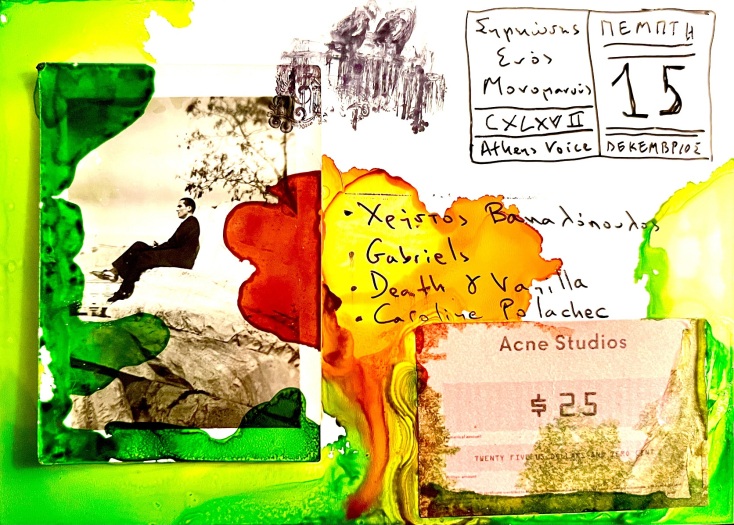 Σημειώσεις
Ενός
Μονομανούς
CXLXVII
Athens Voice
ΠΕΜΠΤΗ
15
ΔΕΚΕΜΒΡΙΟΣ
• Χρήστος Βακαλόπουλος
• Gabriels
• Death & Vanilla
• Caroline Polachec
Acne Studios
$ 25
TWENTY FIVE US DOLLARS AND ZERO CENT